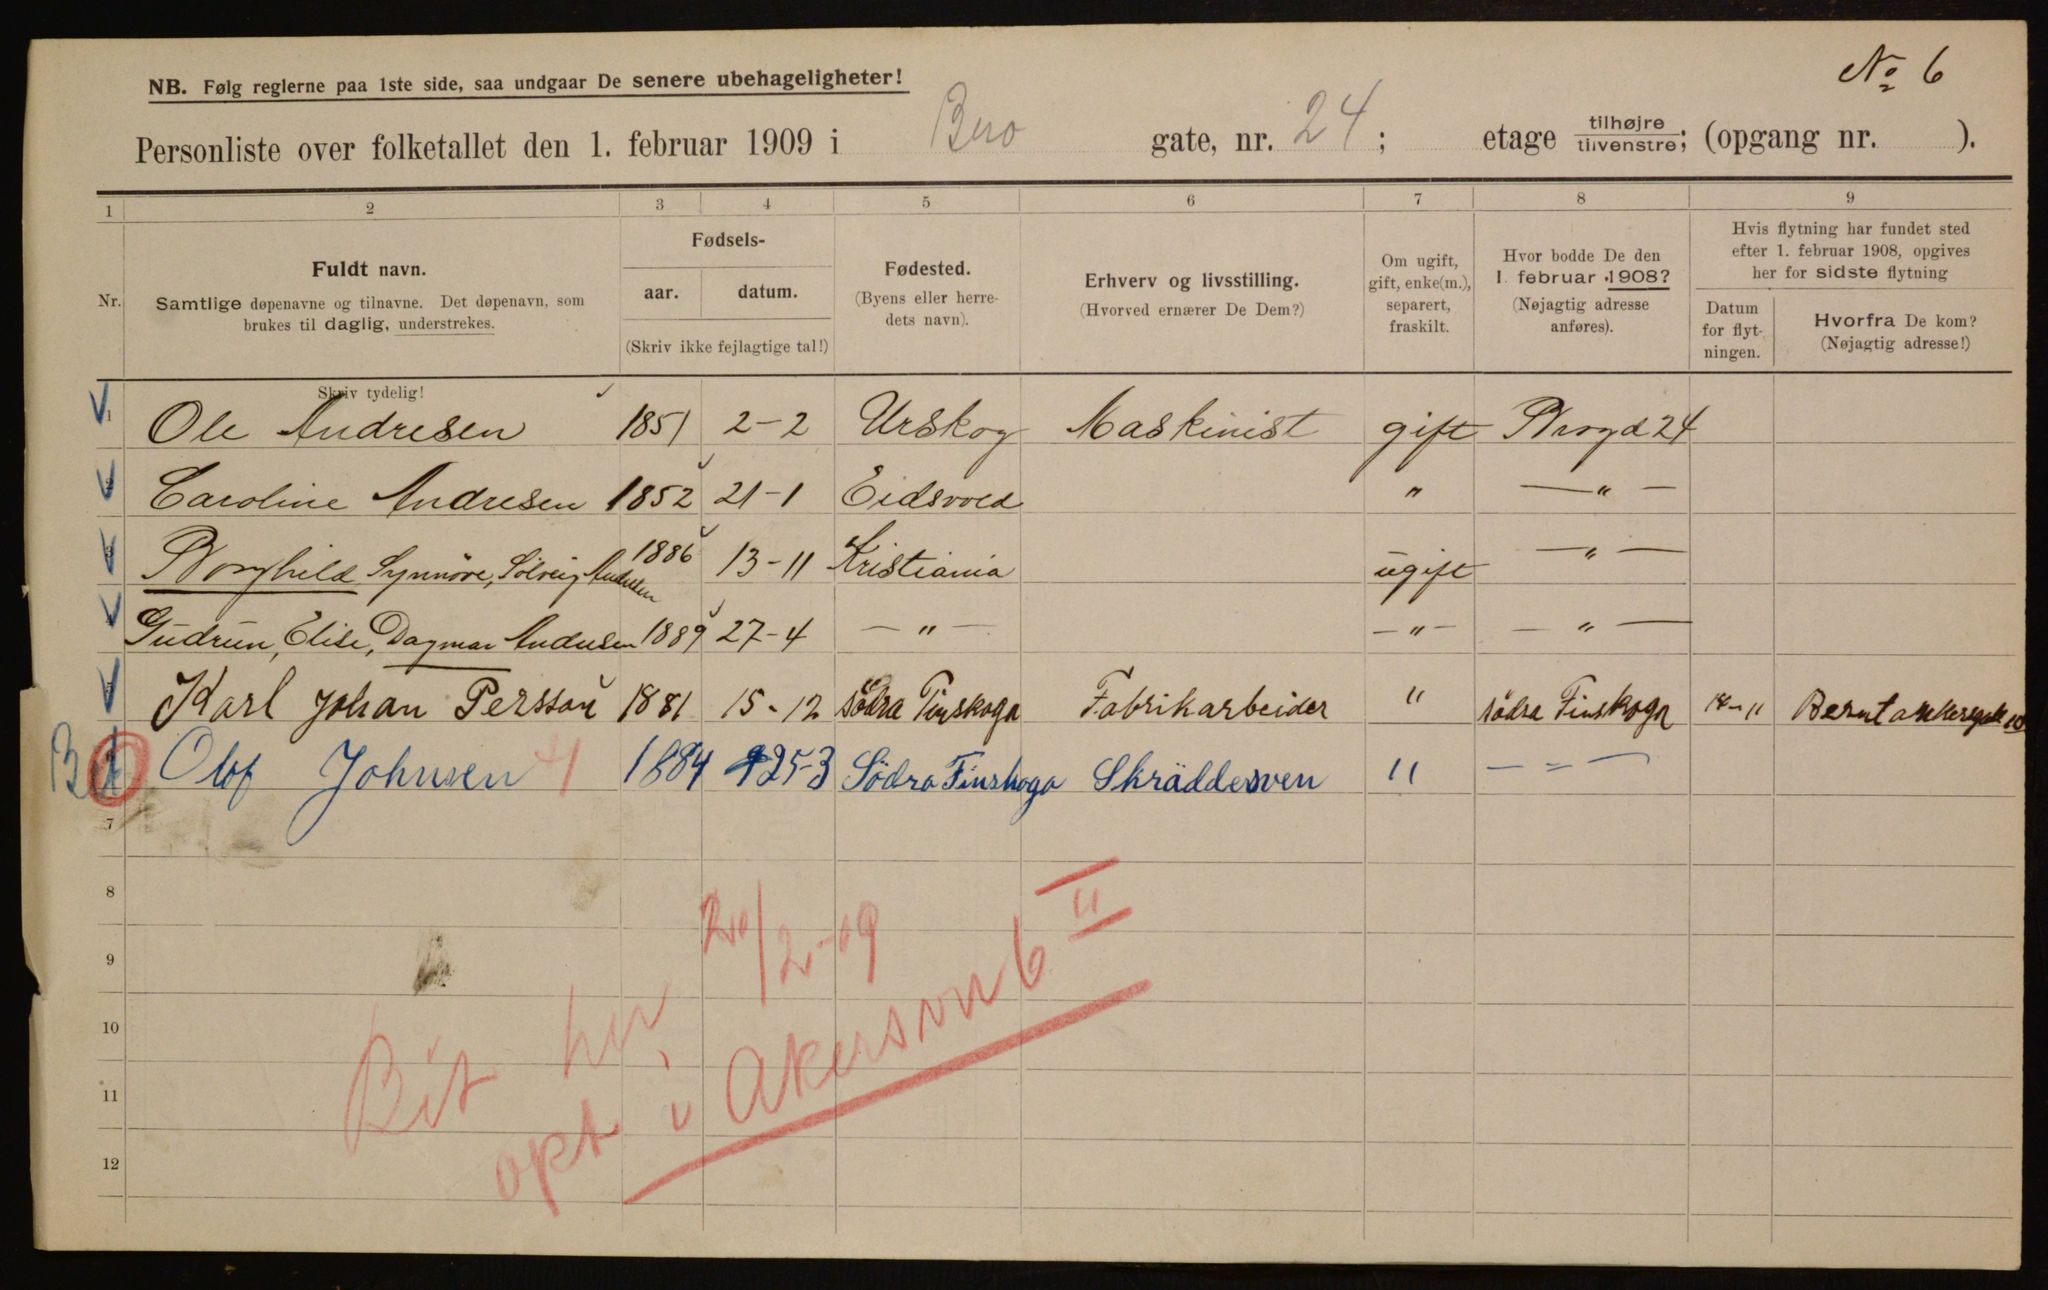 № 6
NB. Følg reglerne paa 1ste side, saa undgaar De senere ubehageligheter!
Personliste over folketallet den 1. februar 1909 i Bro gate, nr. 24; etage tilhøjre / tilvenstre; (opgang nr. ).
1 2 3 4 5 6 7 8 9
Nr.
Fuldt navn.
Samtlige døpenavne og tilnavne. Det døpenavn, som
brukes til daglig, understrekes.
Skriv tydelig!
Fødsels-
aar. datum.
(Skriv ikke fejlagtige tal!)
Fødested.
(Byens eller herre-
dets navn).
Erhverv og livsstilling.
(Hvorved ernærer De Dem?)
Om ugift,
gift, enke(m.),
separert,
fraskilt.
Hvor bodde De den
1. februar 1908?
(Nøjagtig adresse
anføres).
Hvis flytning har fundet sted
efter 1. februar 1908, opgives
her for sidste flytning
Datum
for flyt-
ningen.
Hvorfra De kom?
(Nøjagtig adresse!)
1 Ole Andresen 1851 2-2 Urskog Maskinist gift Brogd 24
2 Caroline Andresen 1852 21-1 Eidsvold " — " —
3 Borghild Synnöve, Sölveig Andresen 1886 13-11 Kristiania ugift — " —
4 Gudrun, Elise, Dagmar Andresen 1889 27-4 — " — — " — — " —
5 Karl Johan Persson 1881 15-12 södra Finskoga Fabrikarbeider " södra Finskoga 18-11 Bernt ankersgate 10
Olof Johnsen 1884 25-3 Södra Finskoga Skräddesven " — = —
7
8
9
10
11
12
20/2-09
Bit her
opt i Akersvn 6 II